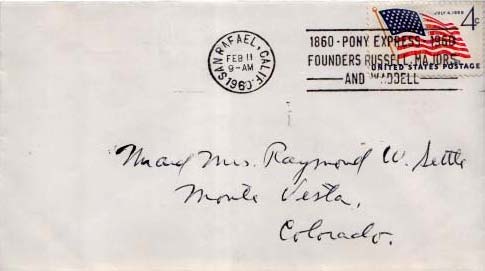 JULY 4, 1960
4¢
UNITED STATES POSTAGE
SAN RAFAEL, CALIF.
FEB 11
9-AM
1960
1860-PONY EXPRESS-1960
FOUNDERS RUSSELL, MAJORS
AND WADDELL
Mr and Mrs. Raymond W. Settle
Monte Vista,
Colorado.